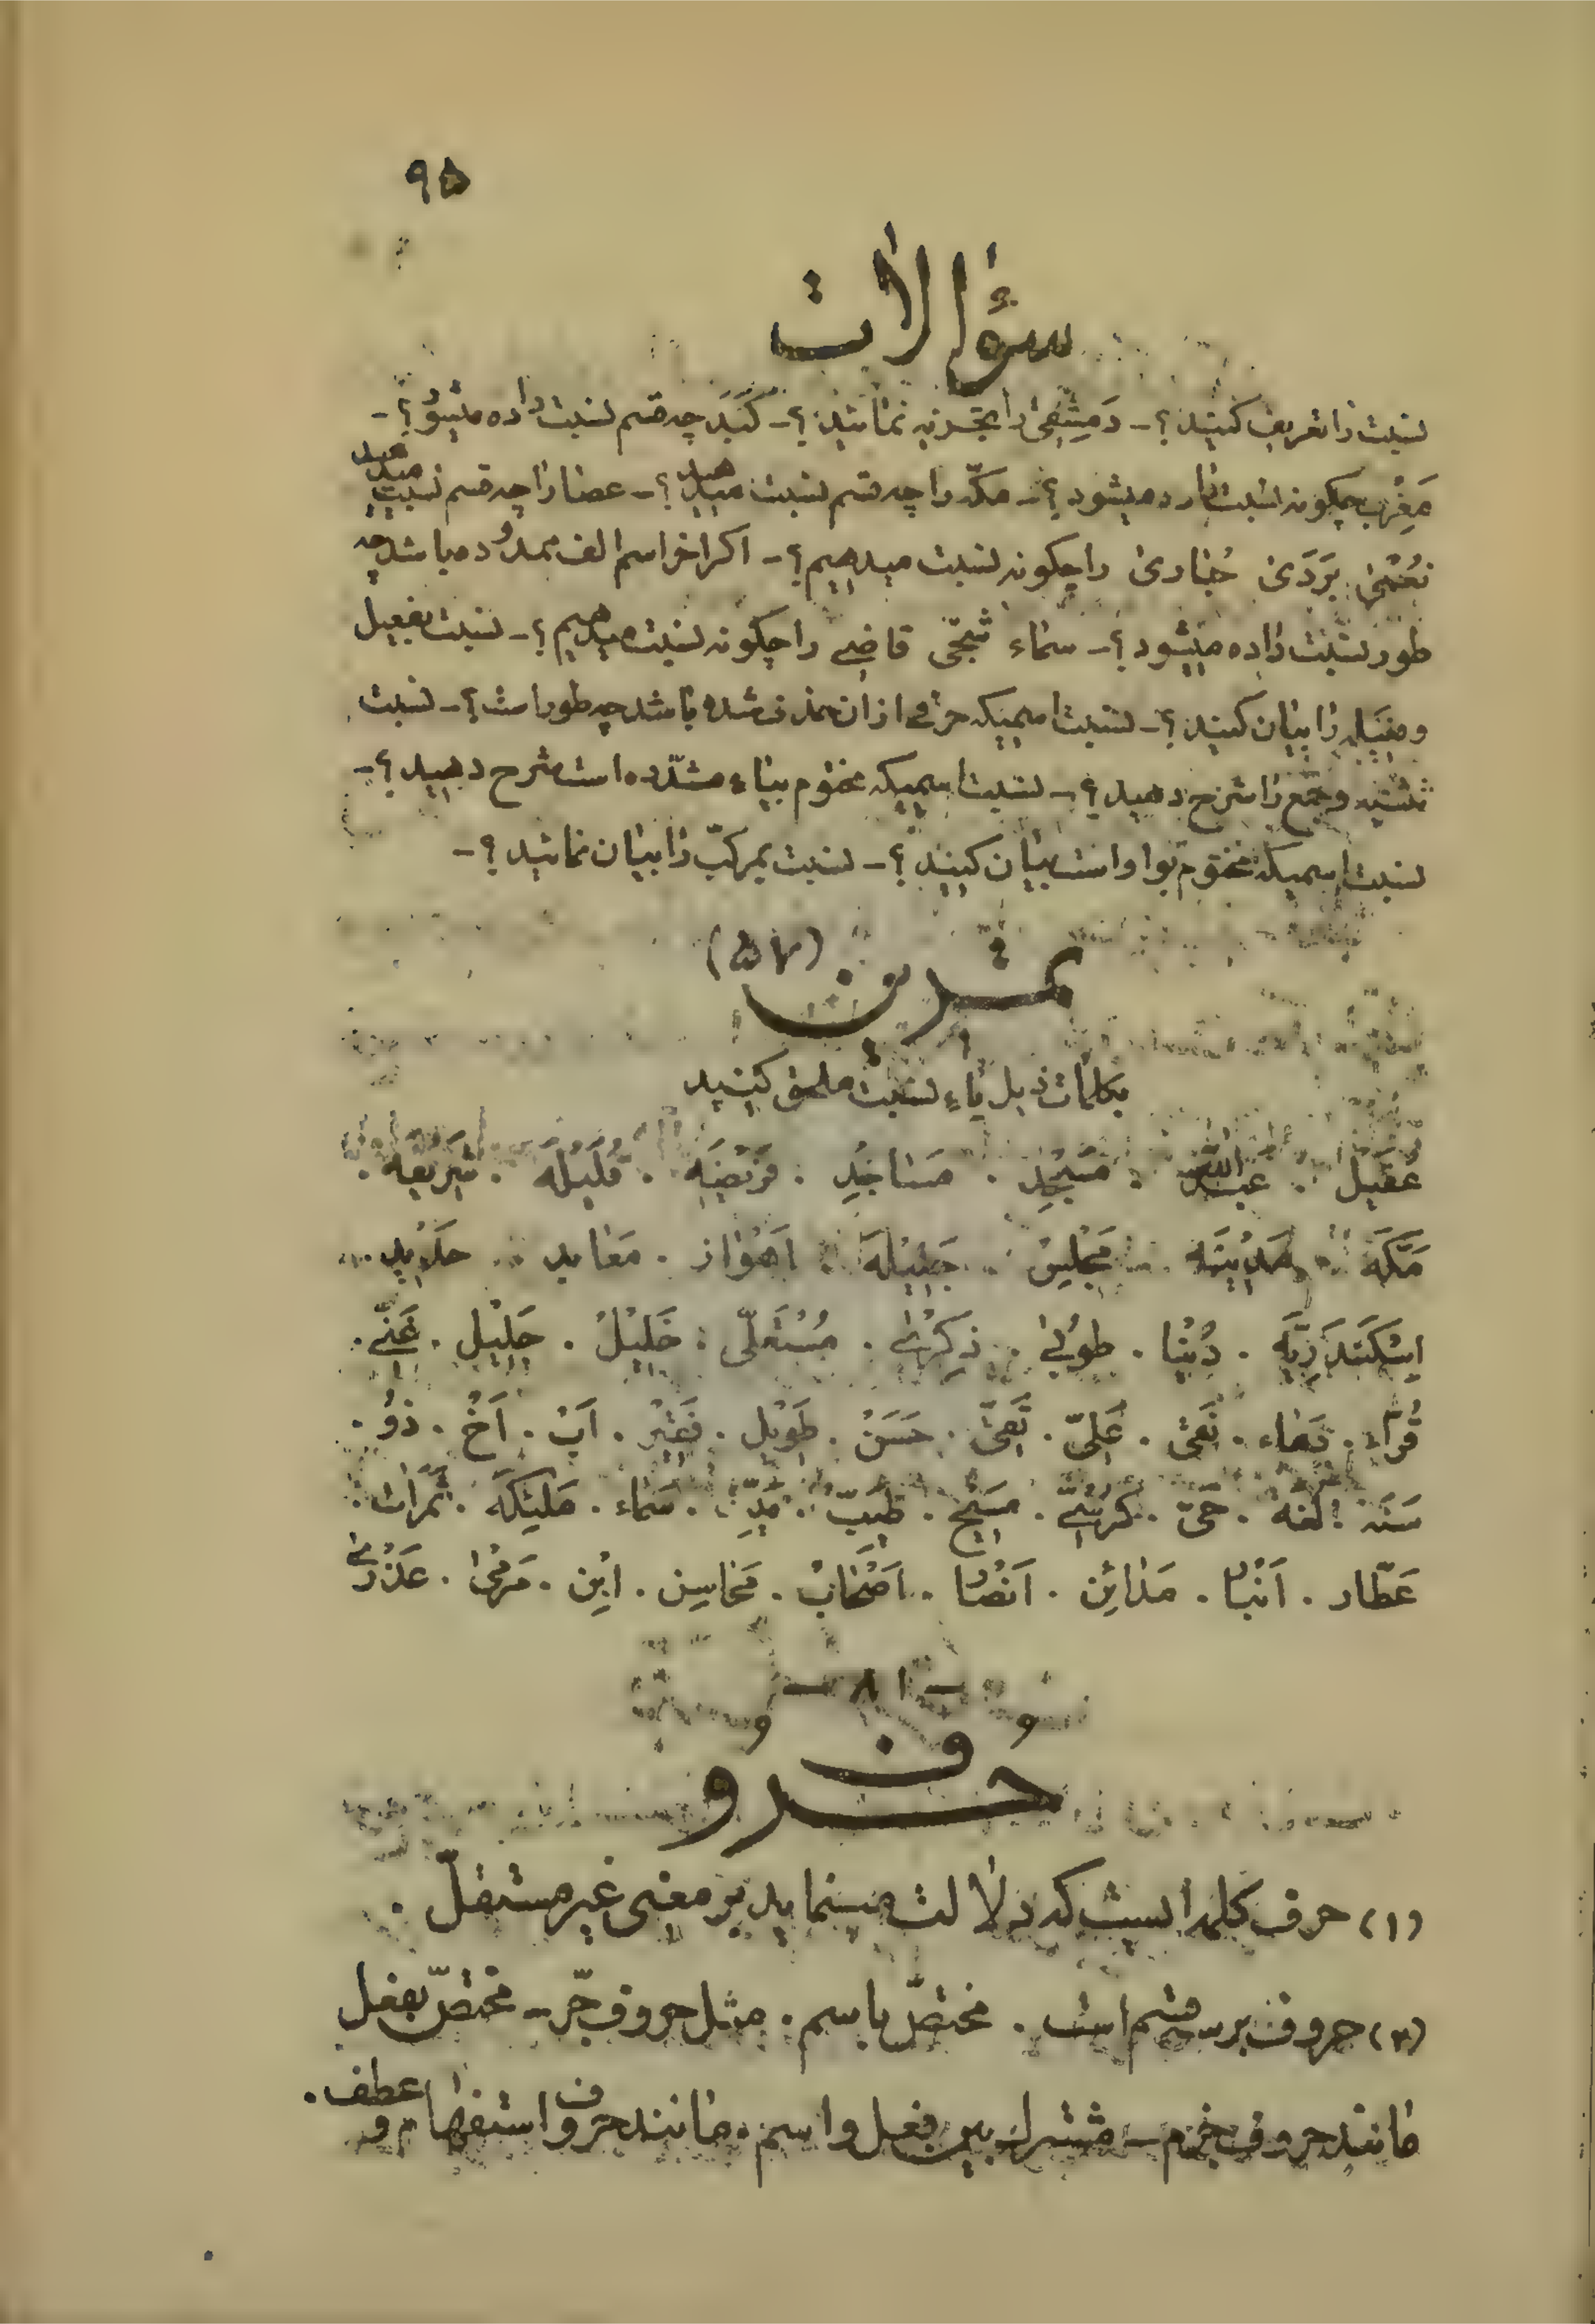 ۹۵
سؤالات
نسبت را تعریف کنید؟ - دَمِشْقِیّ را تجزیه نمائید؟ - کَبَد چه قسم نسبت داده میشود؟ -
مَغْرِب چگونه نسبت داده میشود؟ - مکّه را چه قسم نسبت میدهید؟ - عصا را چه قسم نسبت میدهید
بَرَدَی حُبَاری را چگونه نسبت میدهیم؟ - اگر اخر اسم الف ممدود میباشد چه
طور نسبت داده میشود؟ - سماء شجی قاضی را چگونه نسبت میدهیم؟ - نسبت بفعیل
و را بیان کنید؟ - نسبت اسمیکه حرفی از ان حذف شده باشد چه طور است؟ - نسبت
تثنیه و جمع را شرح دهید؟ - نسبت اسمیکه مختوم بیاء مشدّده است شرح دهید؟ -
نسبت اسمیکه مختوم بواو است بیان کنید؟ - نسبت بمرکّب را بیان نمائید؟ -
تمرین (۵۷)
بکلمات ذیل یاء نسبت ملحق کنید
عَقیل . عبدالله . مَسْجِد . مَساجِد . فَریضَه . قُلَیْلَه . شَریعه .
مَکَّه . مَدِیْنَه . مَجْلِس . جَمِیْلَه . اَهْوٰاز . مَعٰابد . حَدِید .
اِسْکَنْدَرِیَّه . دُنْیٰا . طُوْبیٰ . ذِکْرٰی . مُسْتَعْلّی . خَلِیْلْ . جَلِیْل . غَنِیّ .
قُرّاء . . . عَلِیّ . . حَسَنْ . طَوِیْل . فَقِیْر . اَبْ . اَخْ . ذُوْ .
سَنَه . لُغَة . حَیّ . کُرْسِیّ . مَسِیْح . طَیِّبْ . . سَمٰاء . مَلِیْکَه . ثَمَرٰات .
عَطّار . اَنْبٰار . مَدٰائِن . اَنْصٰار . اَصْحٰابْ . مَحٰاسِن . اِبْن . مَرْمیٰ . عَذْرٰی
- ۱۸ -
حروف
(۱) حرف کلمه ایست که دلالت مینماید بر معنی غیر مستقلّ .
(۲) حروف بر سه قسم است . مختصّ باسم . مثل حروف جّر - مختصّ بفعل
مانند حروف جزم - مشترک بین فعل و اسم . مانند حروف استفهام و عطف .